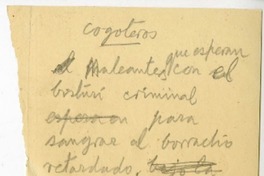 cogoteros
que esperan
Maleantes, con el
bisturí criminal
esperaron para
sangrar al borracho
retardado, bajo la